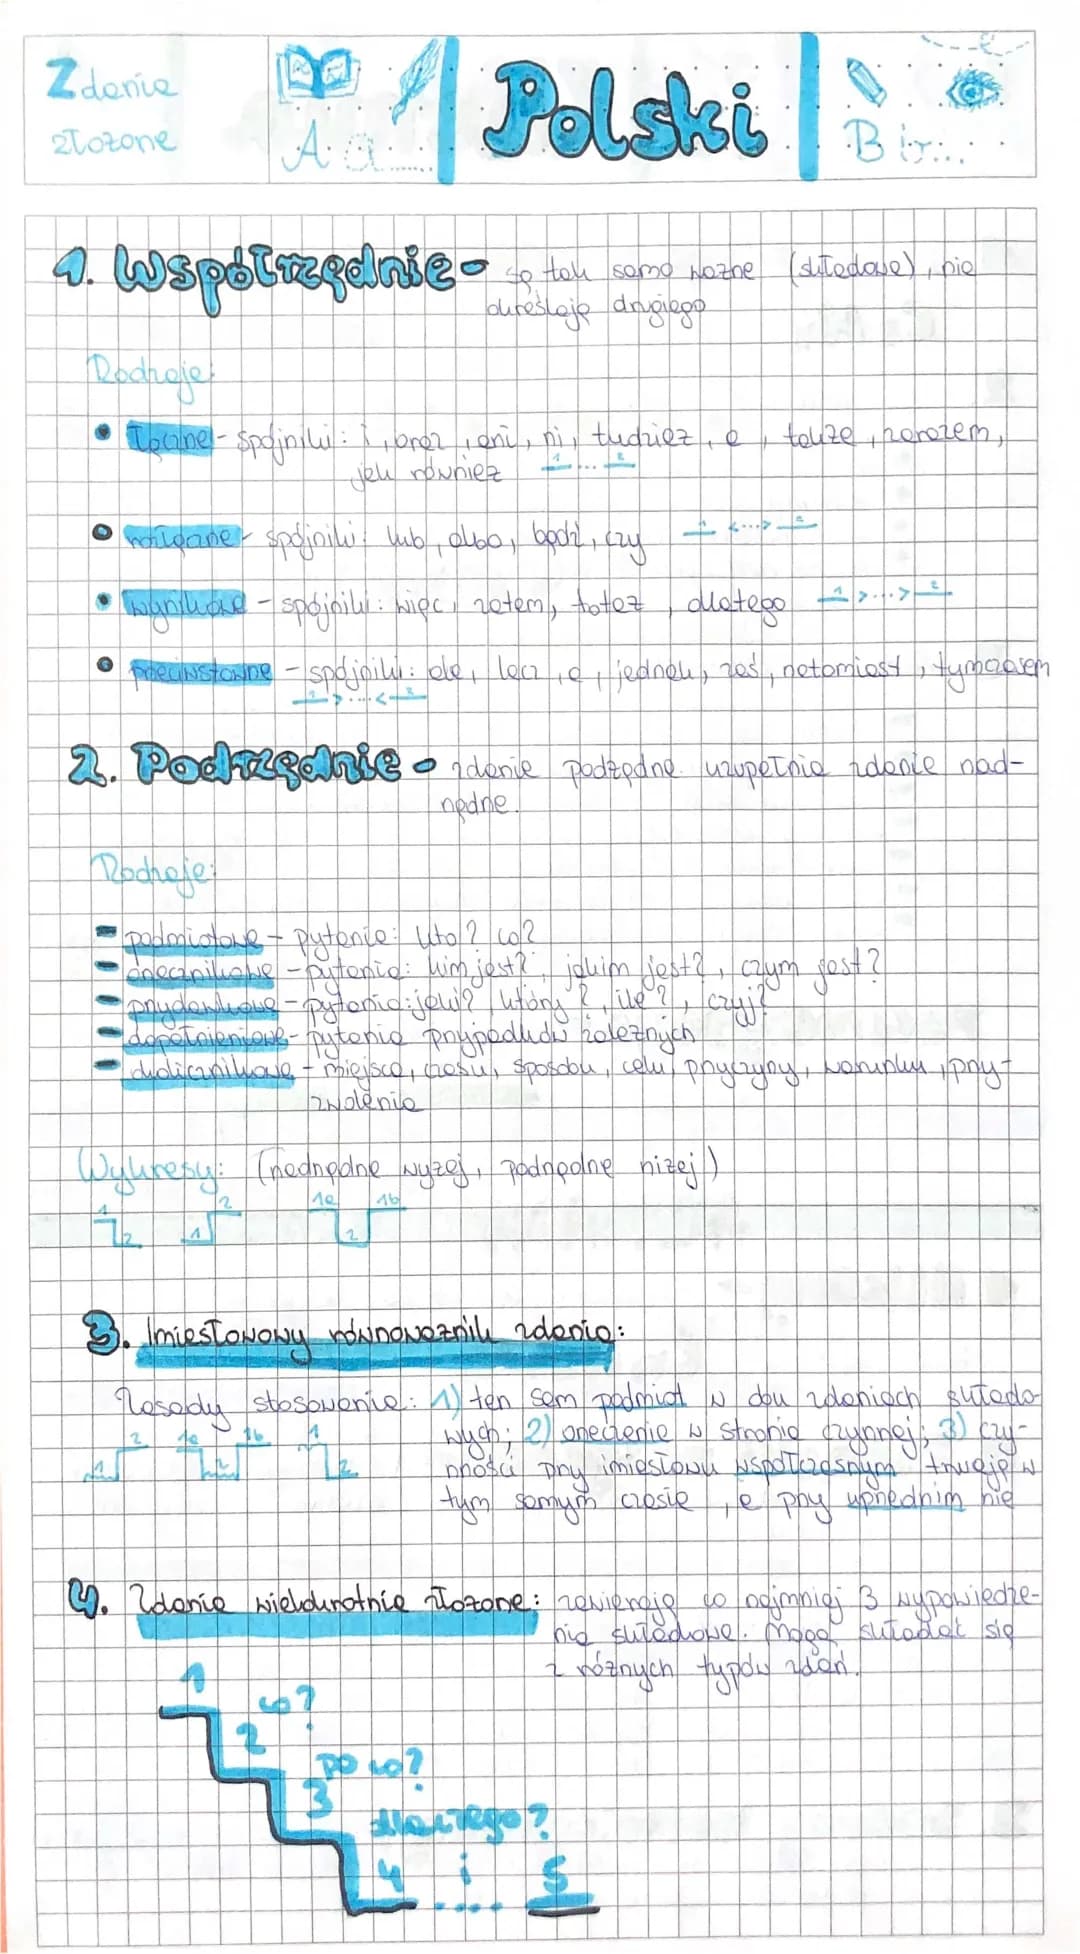 Zdania
złożone
Aa
Polski
1. Współrzędnie - są tak samo ważne (składowe), nie
określają drugiego
Rodzaje:
• łączne - spójniki: i, oraz, ani, ni, tudzież, a, także, zarazem,
jak również 1 ... 2
• rozłączne - spójniki: lub, albo, bądź, czy 1 <...> 2
• wynikowe - spójniki: więc, zatem, toteż, dlatego 1 >...> 2
• przeciwstawne - spójniki: ale, lecz, a, jednak, zaś, natomiast, tymczasem
1 >...< 2
2. Podrzędnie - zdanie podrzędne uzupełnia zdanie nad-
rzędne.
Rodzaje:
- podmiotowe - pytanie: kto? co?
- orzecznikowe - pytania: kim jest?, jakim jest?, czym jest?
- przydawkowe - pytania: jaki?, który?, ile?, czyj?
- dopełnieniowe - pytania przypadków zależnych
- okolicznikowe - miejsca, czasu, sposobu, celu, przyczyny, warunku, przy-
zwolenia
Wykresy: (nadrzędne wyżej, podrzędne niżej)
1 2 1 2 1a 2 1b
3. Imiesłowowy równoważnik zdania:
Zasady stosowania: 1) ten sam podmiot w obu zdaniach składo-
wych; 2) orzeczenie w stronie czynnej; 3) czy-
nności przy imiesłowu współczesnym trwają w
tym samym czasie, a przy uprzednim nie
1 2 1a 2 1b 1 2
4. Zdania wielokrotnie złożone: zawierają co najmniej 3 wypowiedze-
nia składowe. Mogą składać się
z różnych typów zdań.
1
co?
2
po co?
3
dlaczego?
4 i 5
....